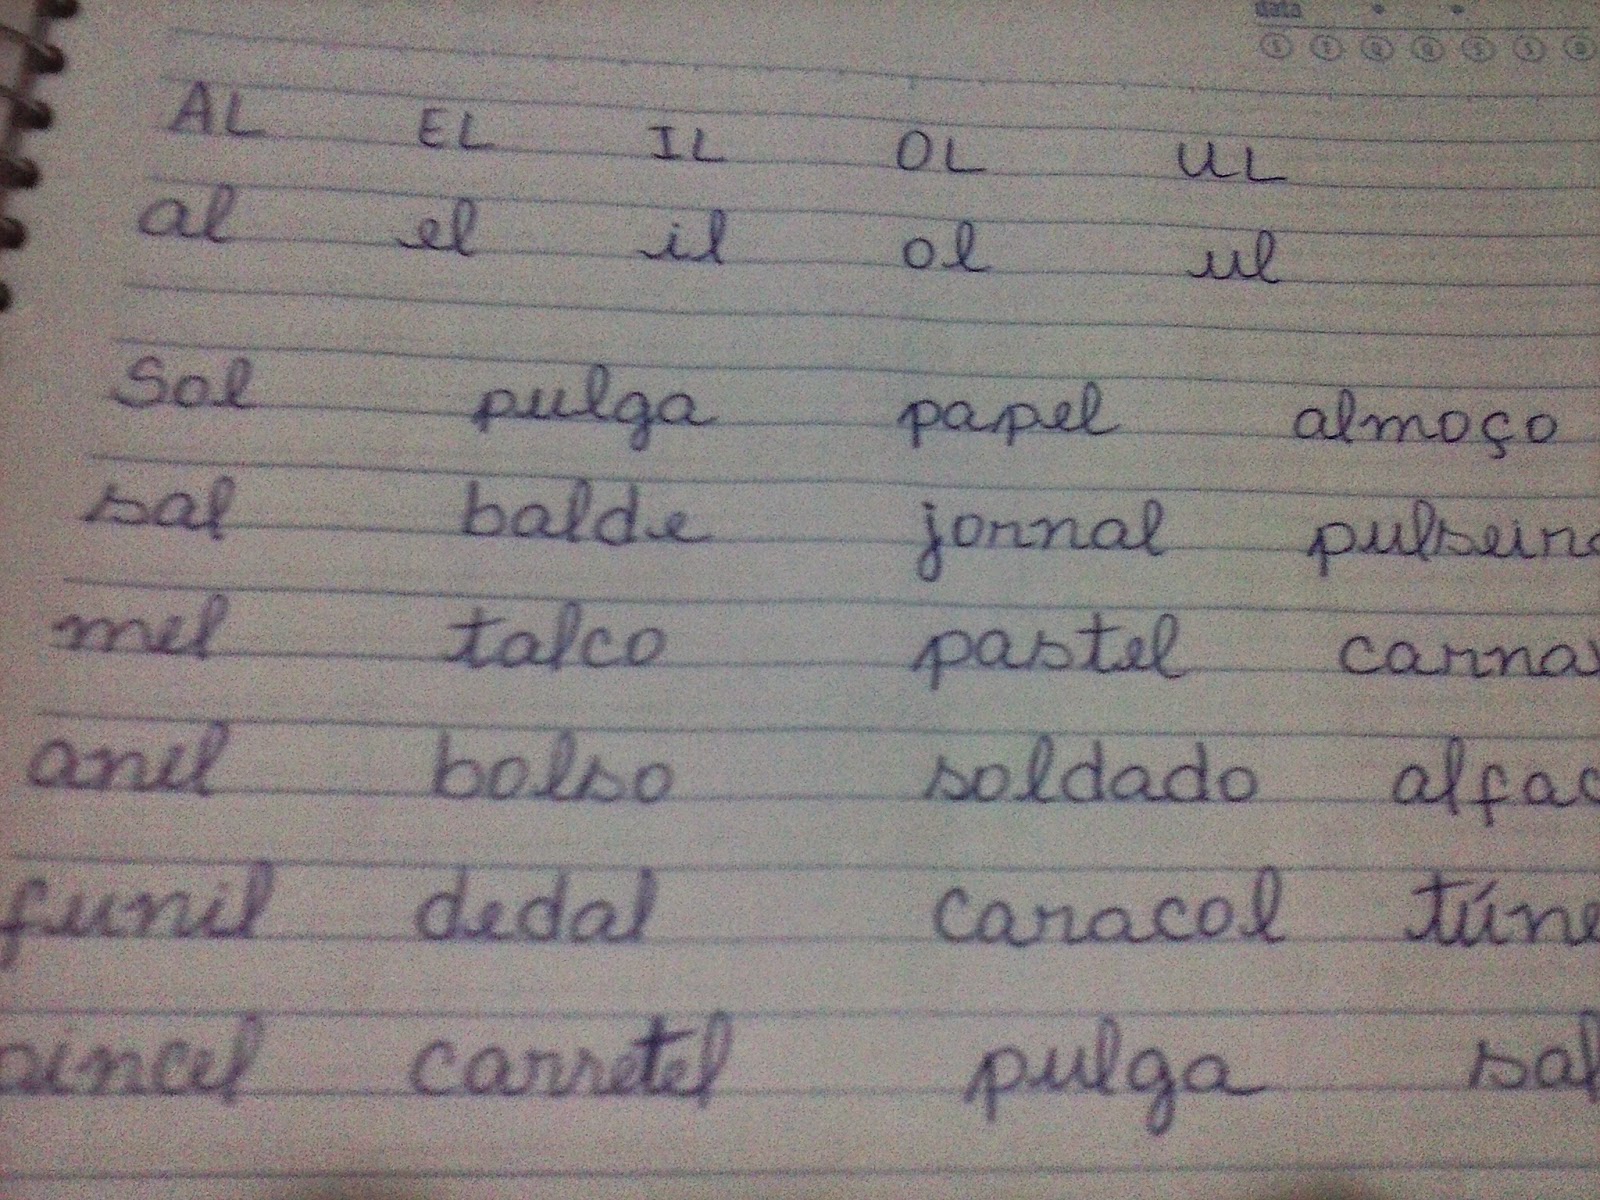 data
S T Q Q S S D
AL EL IL OL UL
al el il ol ul
Sol pulga papel almoço
sal balde jornal pulseira
mel talco pastel carnav
anil bolso soldado alfac
funil dedal caracol túne
pincel carretel pulga sal